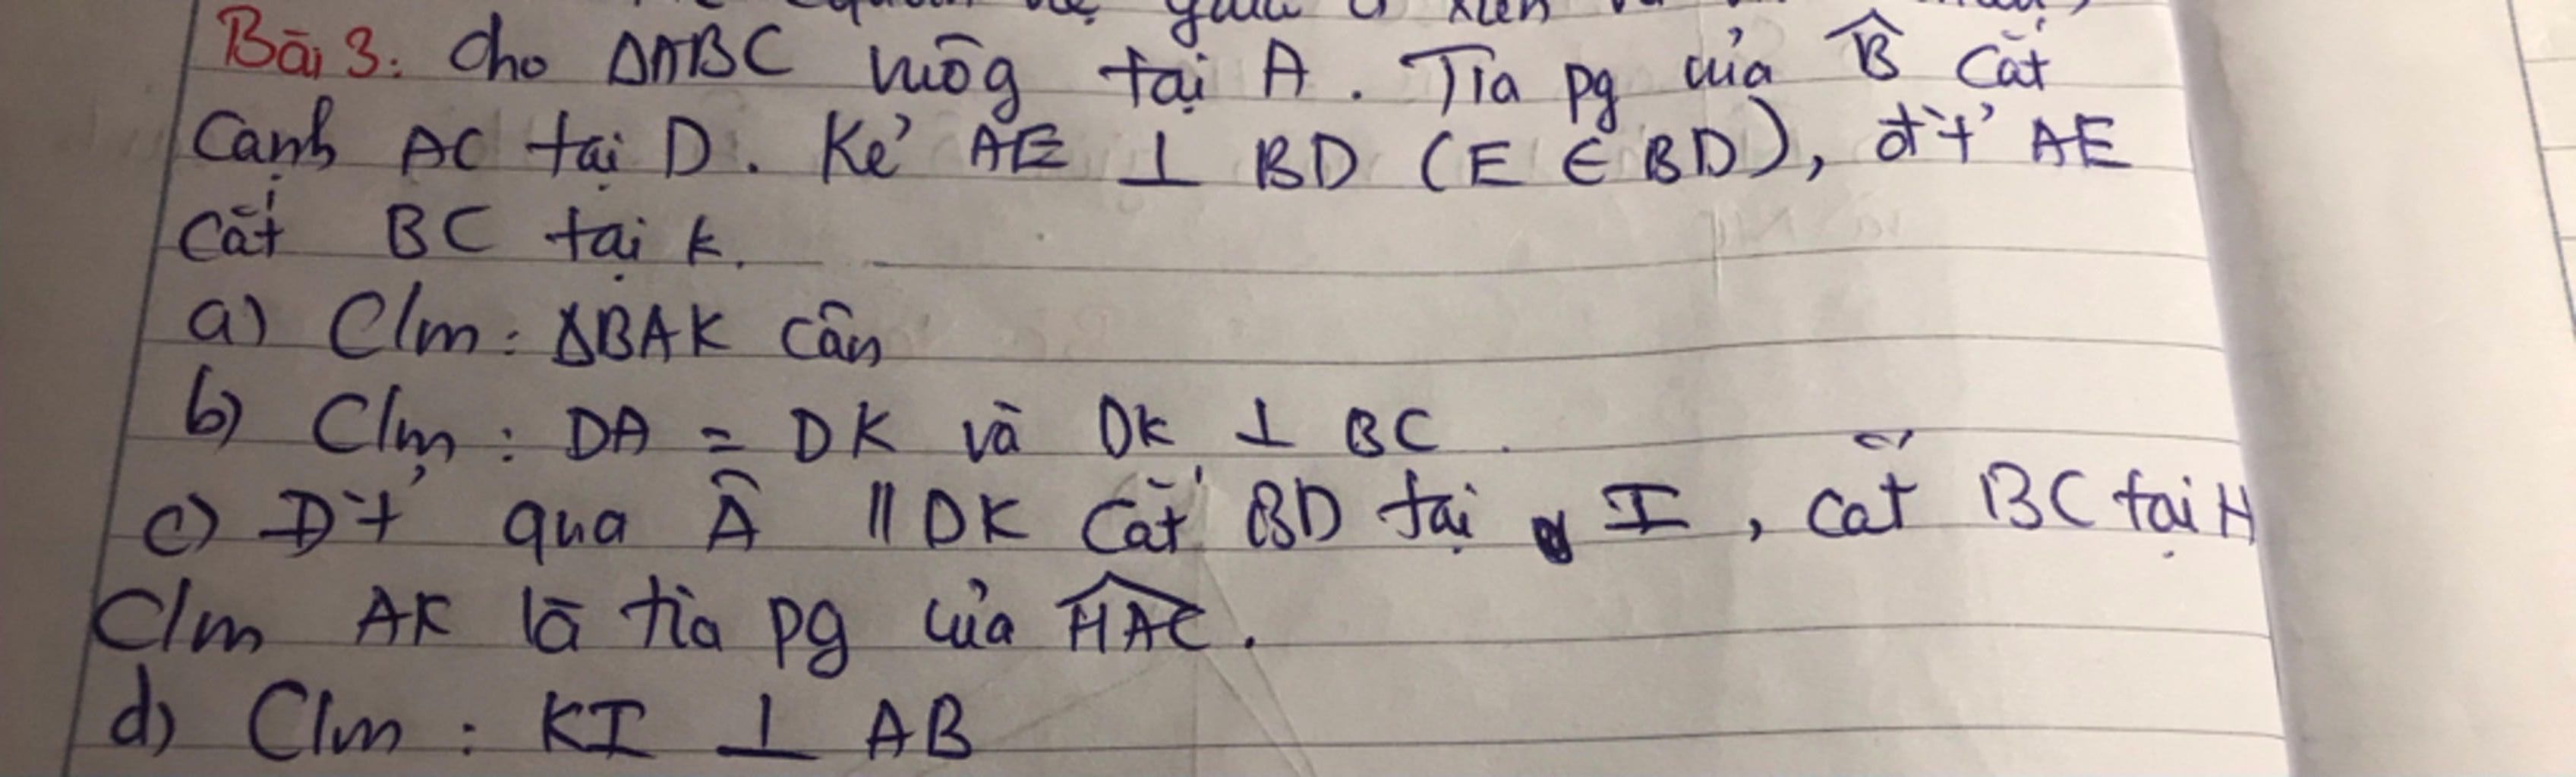 giữa xiên
Bài 3: Cho ΔABC vuôg tại A. Tia pg của B̂ cắt
Cạnh AC tại D. Kẻ AE ⊥ BD (E ∈ BD), đ't' AE
Cắt BC tại K.
a) C/m: ΔBAK cân
b) C/m: DA = DK và DK ⊥ BC.
c) Đ't' qua Â // DK cắt BD tại I, cắt BC tại H
C/m AK là tia pg của HAC.
d) C/m: KI ⊥ AB